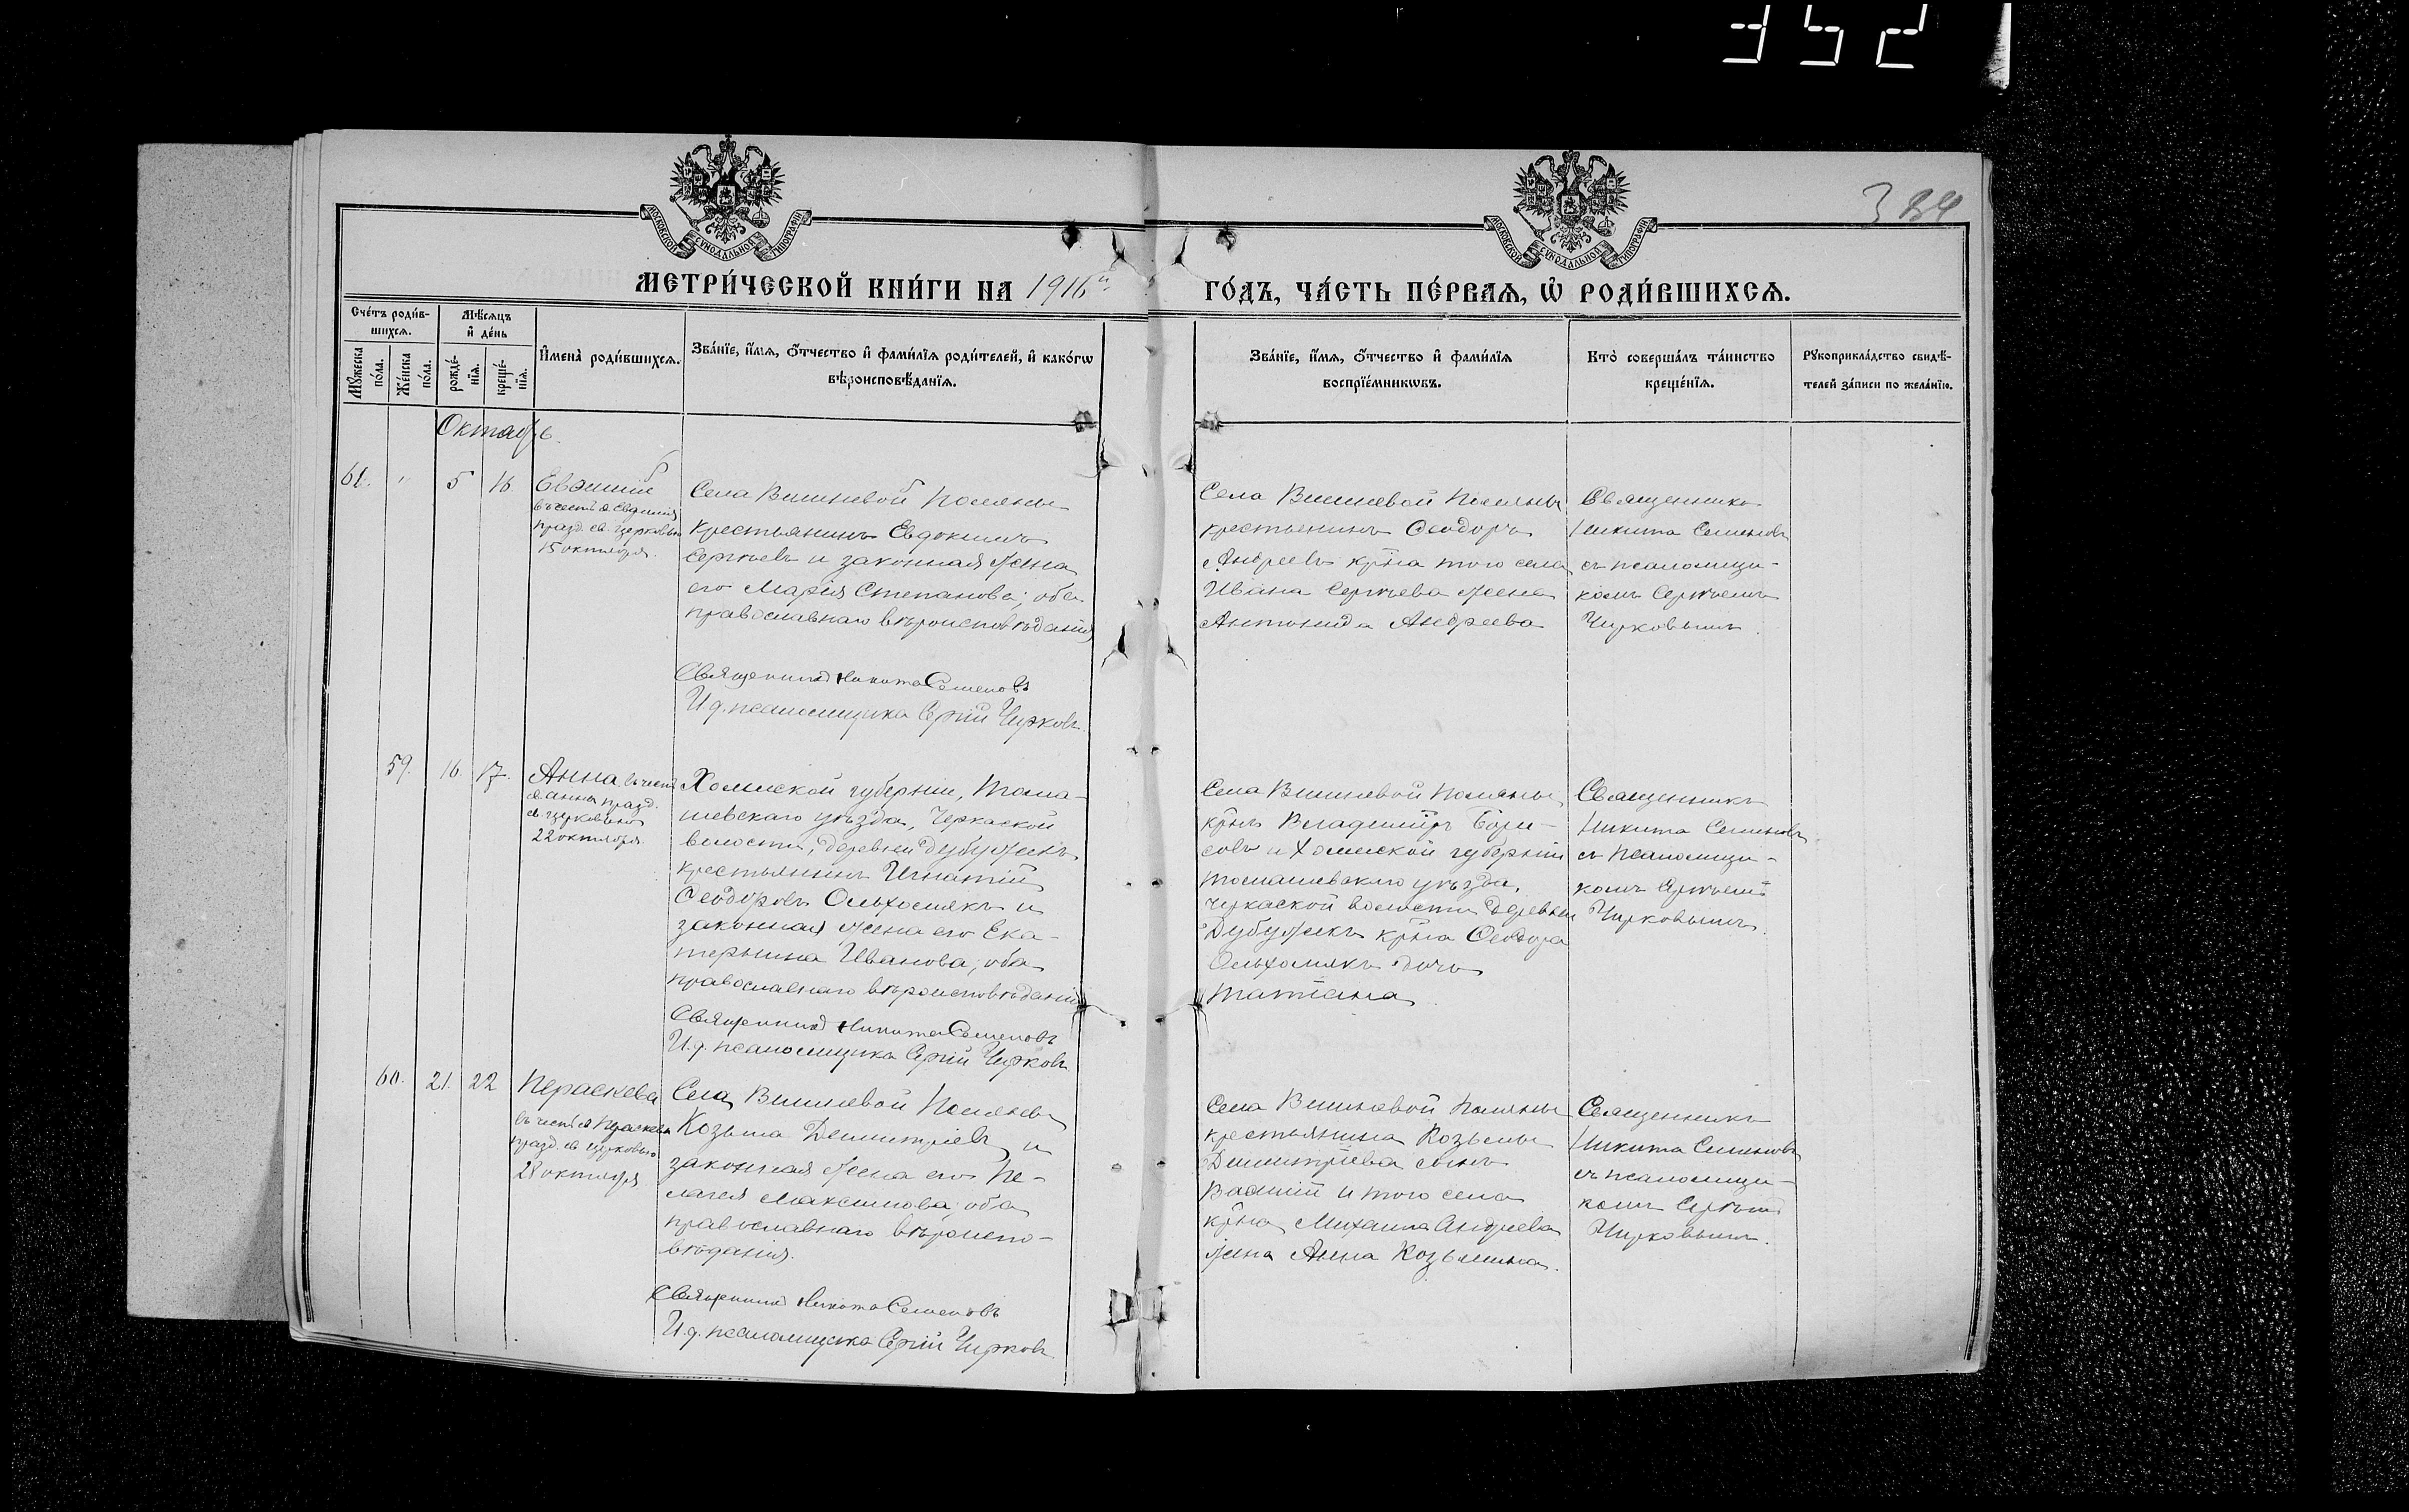 352
МОСКОВСКОЙ СѴНОДАЛЬНОЙ ТИПОГРАФІИ
МОСКОВСКОЙ СѴНОДАЛЬНОЙ ТИПОГРАФІИ
МЕТРИ́ЧЕСКОЙ КНИ́ГИ НА 1916й
ГО́ДЪ, ЧА́СТЬ ПЕ́РВАѦ, Ѽ РОДИ́ВШИХСѦ.
Сче́тъ роди́в-
шихсѧ.
Мꙋжеска
по́ла.
Же́нска
по́ла.
Мѣ́сѧцъ
и҆ де́нь
рожде́-
нїѧ.
креще́-
нїѧ.
И҆мена̀ роди́вшихсѧ.
Зва́нїе, и҆́мѧ, ѻ҆́тчество и҆ фами́лїѧ роди́телей, и҆ како́гѡ
вѣроисповѣ́данїѧ.
Зва́нїе, и҆́мѧ, ѻ҆́тчество и҆ фами́лїѧ
воспрїе́мникѡвъ.
Кто̀ соверша́лъ та́инство
креще́нїѧ.
Рꙋкоприкла́дство свидѣ́-
телей за́писи по жела́нїю.
Октябрь.
61. " 5 16
Евѳимій
въ честь
празд. св. церковью
15 октября.
Села Вишневой Поляны
крестьянинъ Евдокимъ
Сергѣевъ и законная жена
его Марія Степанова; оба
православнаго вѣроисповѣданія
Священникъ Никита Семеновъ
И. д. псаломщика Сергій Чирковъ
Села Вишневой Поляны
крестьянинъ Ѳеодоръ
Андреевъ кр̃на того села
Ивана Сергѣева жена
Антонида Андреева
Священникъ
Никита Семеновъ
съ псаломщи-
комъ Сергѣемъ
Чирковымъ.
59. 16. 17.
Анна въ честь
св. Анны празд.
св. церковью
22 октября.
Холмской губерніи, Тома-
шевскаго уѣзда, Черкаской
волости, деревни Дубужекъ
крестьянинъ Игнатій
Ѳеодоровъ Ольхомякъ и
законная жена его Ека-
терина Иванова; оба
православнаго вѣроисповѣданія
Священникъ Никита Семеновъ
И. д. псаломщика Сергій Чирковъ
Села Вишневой Поляны
кр̃нъ Владиміръ Бори-
совъ и Холмской губерніи
Томашевскаго уѣзда,
Черкаской волости деревни
Дубужекъ кр̃на Ѳеодора
Ольхомякъ дочь
Татіана
Священникъ
Никита Семеновъ
съ псаломщи-
комъ Сергѣемъ
Чирковымъ.
60. 21. 22
Параскева
въ честь св. Параскевы
празд. св. церковью
28 октября
Села Вишневой Поляны
Козьма Димитріевъ и
законная жена его Пе-
лагея Максимова; оба
православнаго вѣроиспо-
вѣданія.
Священникъ Никита Семеновъ
И. д. псаломщика Сергій Чирковъ
Села Вишневой Поляны
крестьянина Козьмы
Димитріева сынъ
и того села
кр̃на Михаила Андреева
жена Анна Козьмина.
Священникъ
Никита Семеновъ
съ псаломщи-
комъ Сергѣемъ
Чирковымъ.